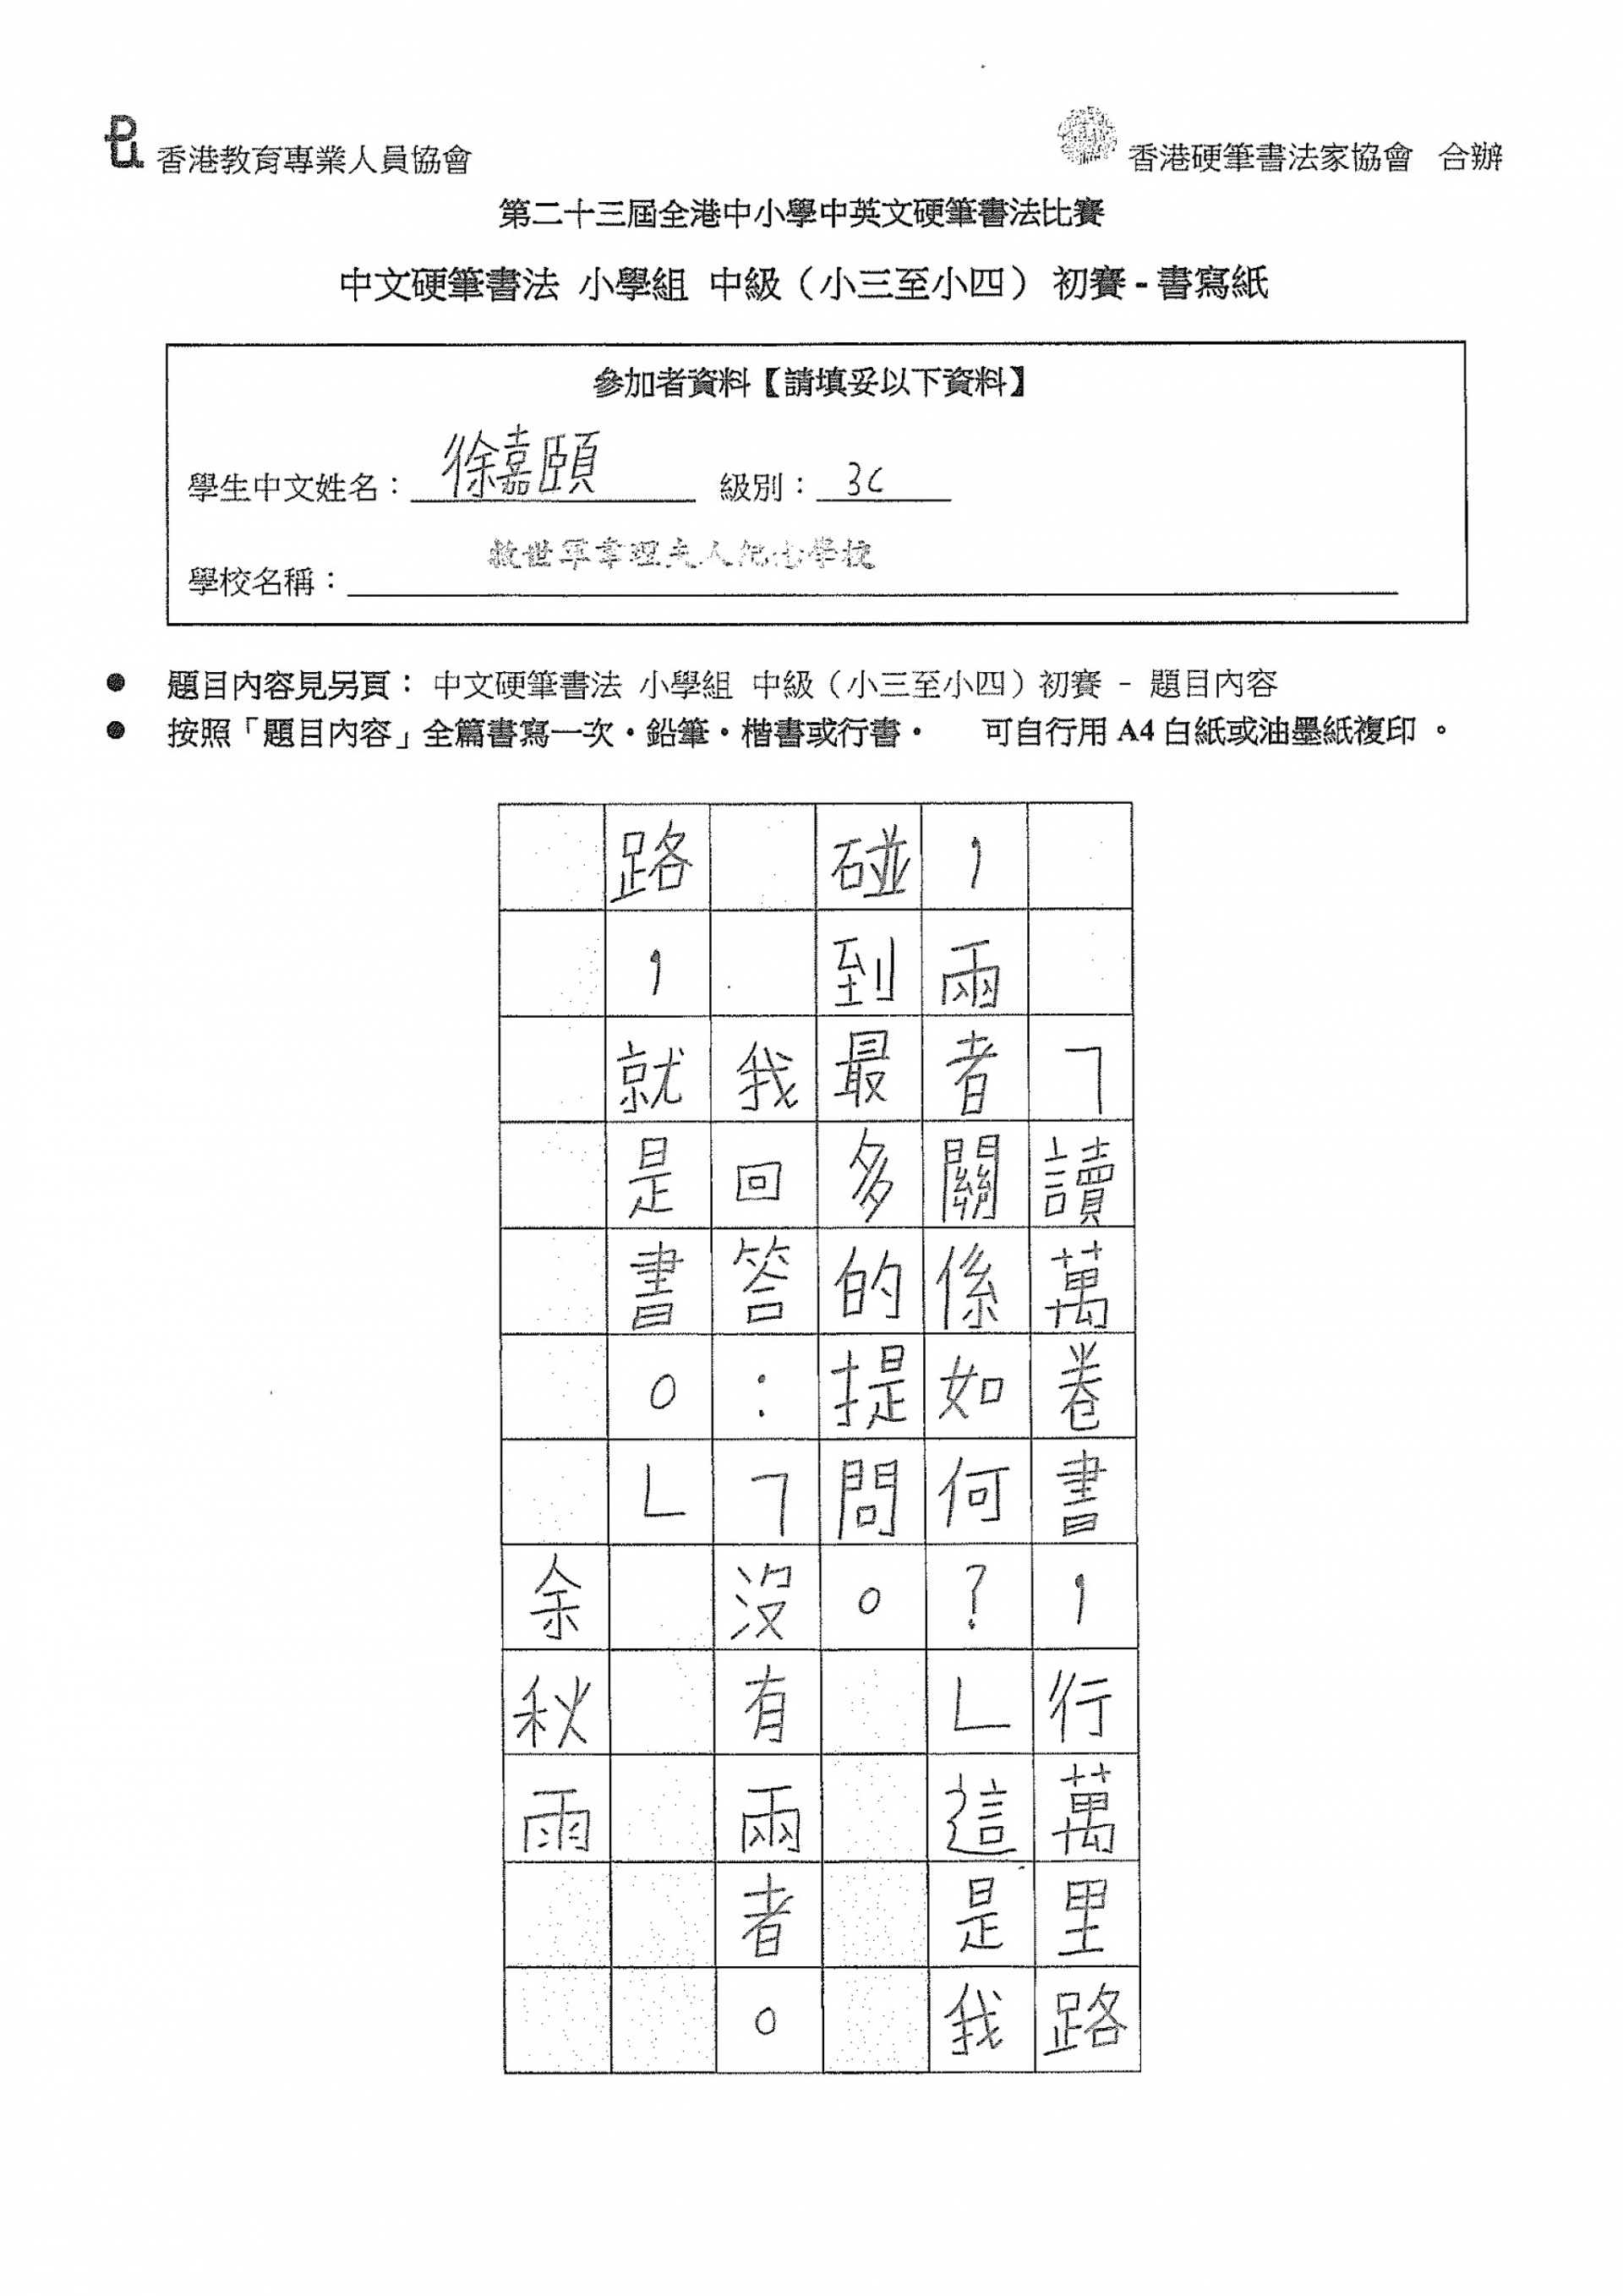 香港教育專業人員協會
香港硬筆書法家協會 合辦
第二十三屆全港中小學中英文硬筆書法比賽
中文硬筆書法 小學組 中級（小三至小四） 初賽 - 書寫紙
參加者資料【請填妥以下資料】
學生中文姓名：徐嘉頤 級別：3C
學校名稱：救世軍韋理夫人紀念學校
● 題目內容見另頁： 中文硬筆書法 小學組 中級（小三至小四）初賽 - 題目內容
● 按照「題目內容」全篇書寫一次‧鉛筆‧楷書或行書‧ 可自行用 A4 白紙或油墨紙複印 。
「讀萬卷書，行萬里路
，兩者關係如何？」這是我
碰到最多的提問。
我回答：「沒有兩者。
路，就是書。」
余秋雨